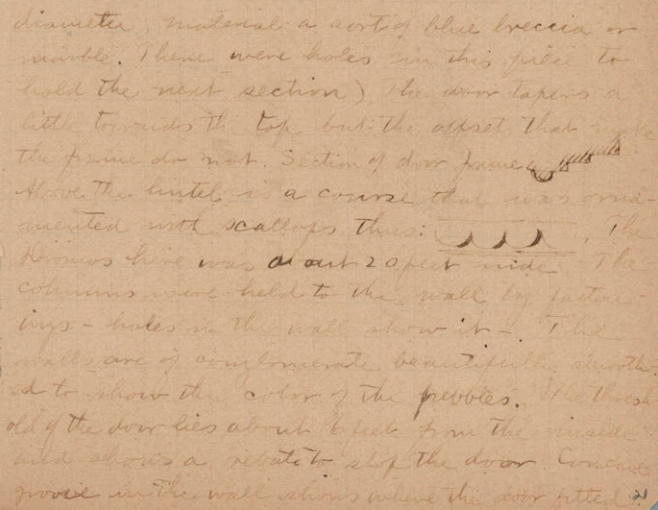 diameter, material a sort of blue breccia or
marble. There were holes in this piece to
hold the next section) The door tapers a
little towards the top but the offset that make
the frame do not. Section of door frame
Above the lintel is a course that was orna-
mented with scallops thus: The
Dromos here was about 20 feet wide The
columns were held to the wall by fasten-
ings - holes in the wall show it -. The
walls are of conglomerate beautifully smooth-
ed to show the color of the pebbles. The thresh
old of the door lies about feet from the inside
and shows a rebate to stop the door Concave
groove in the wall shows where the door fitted.